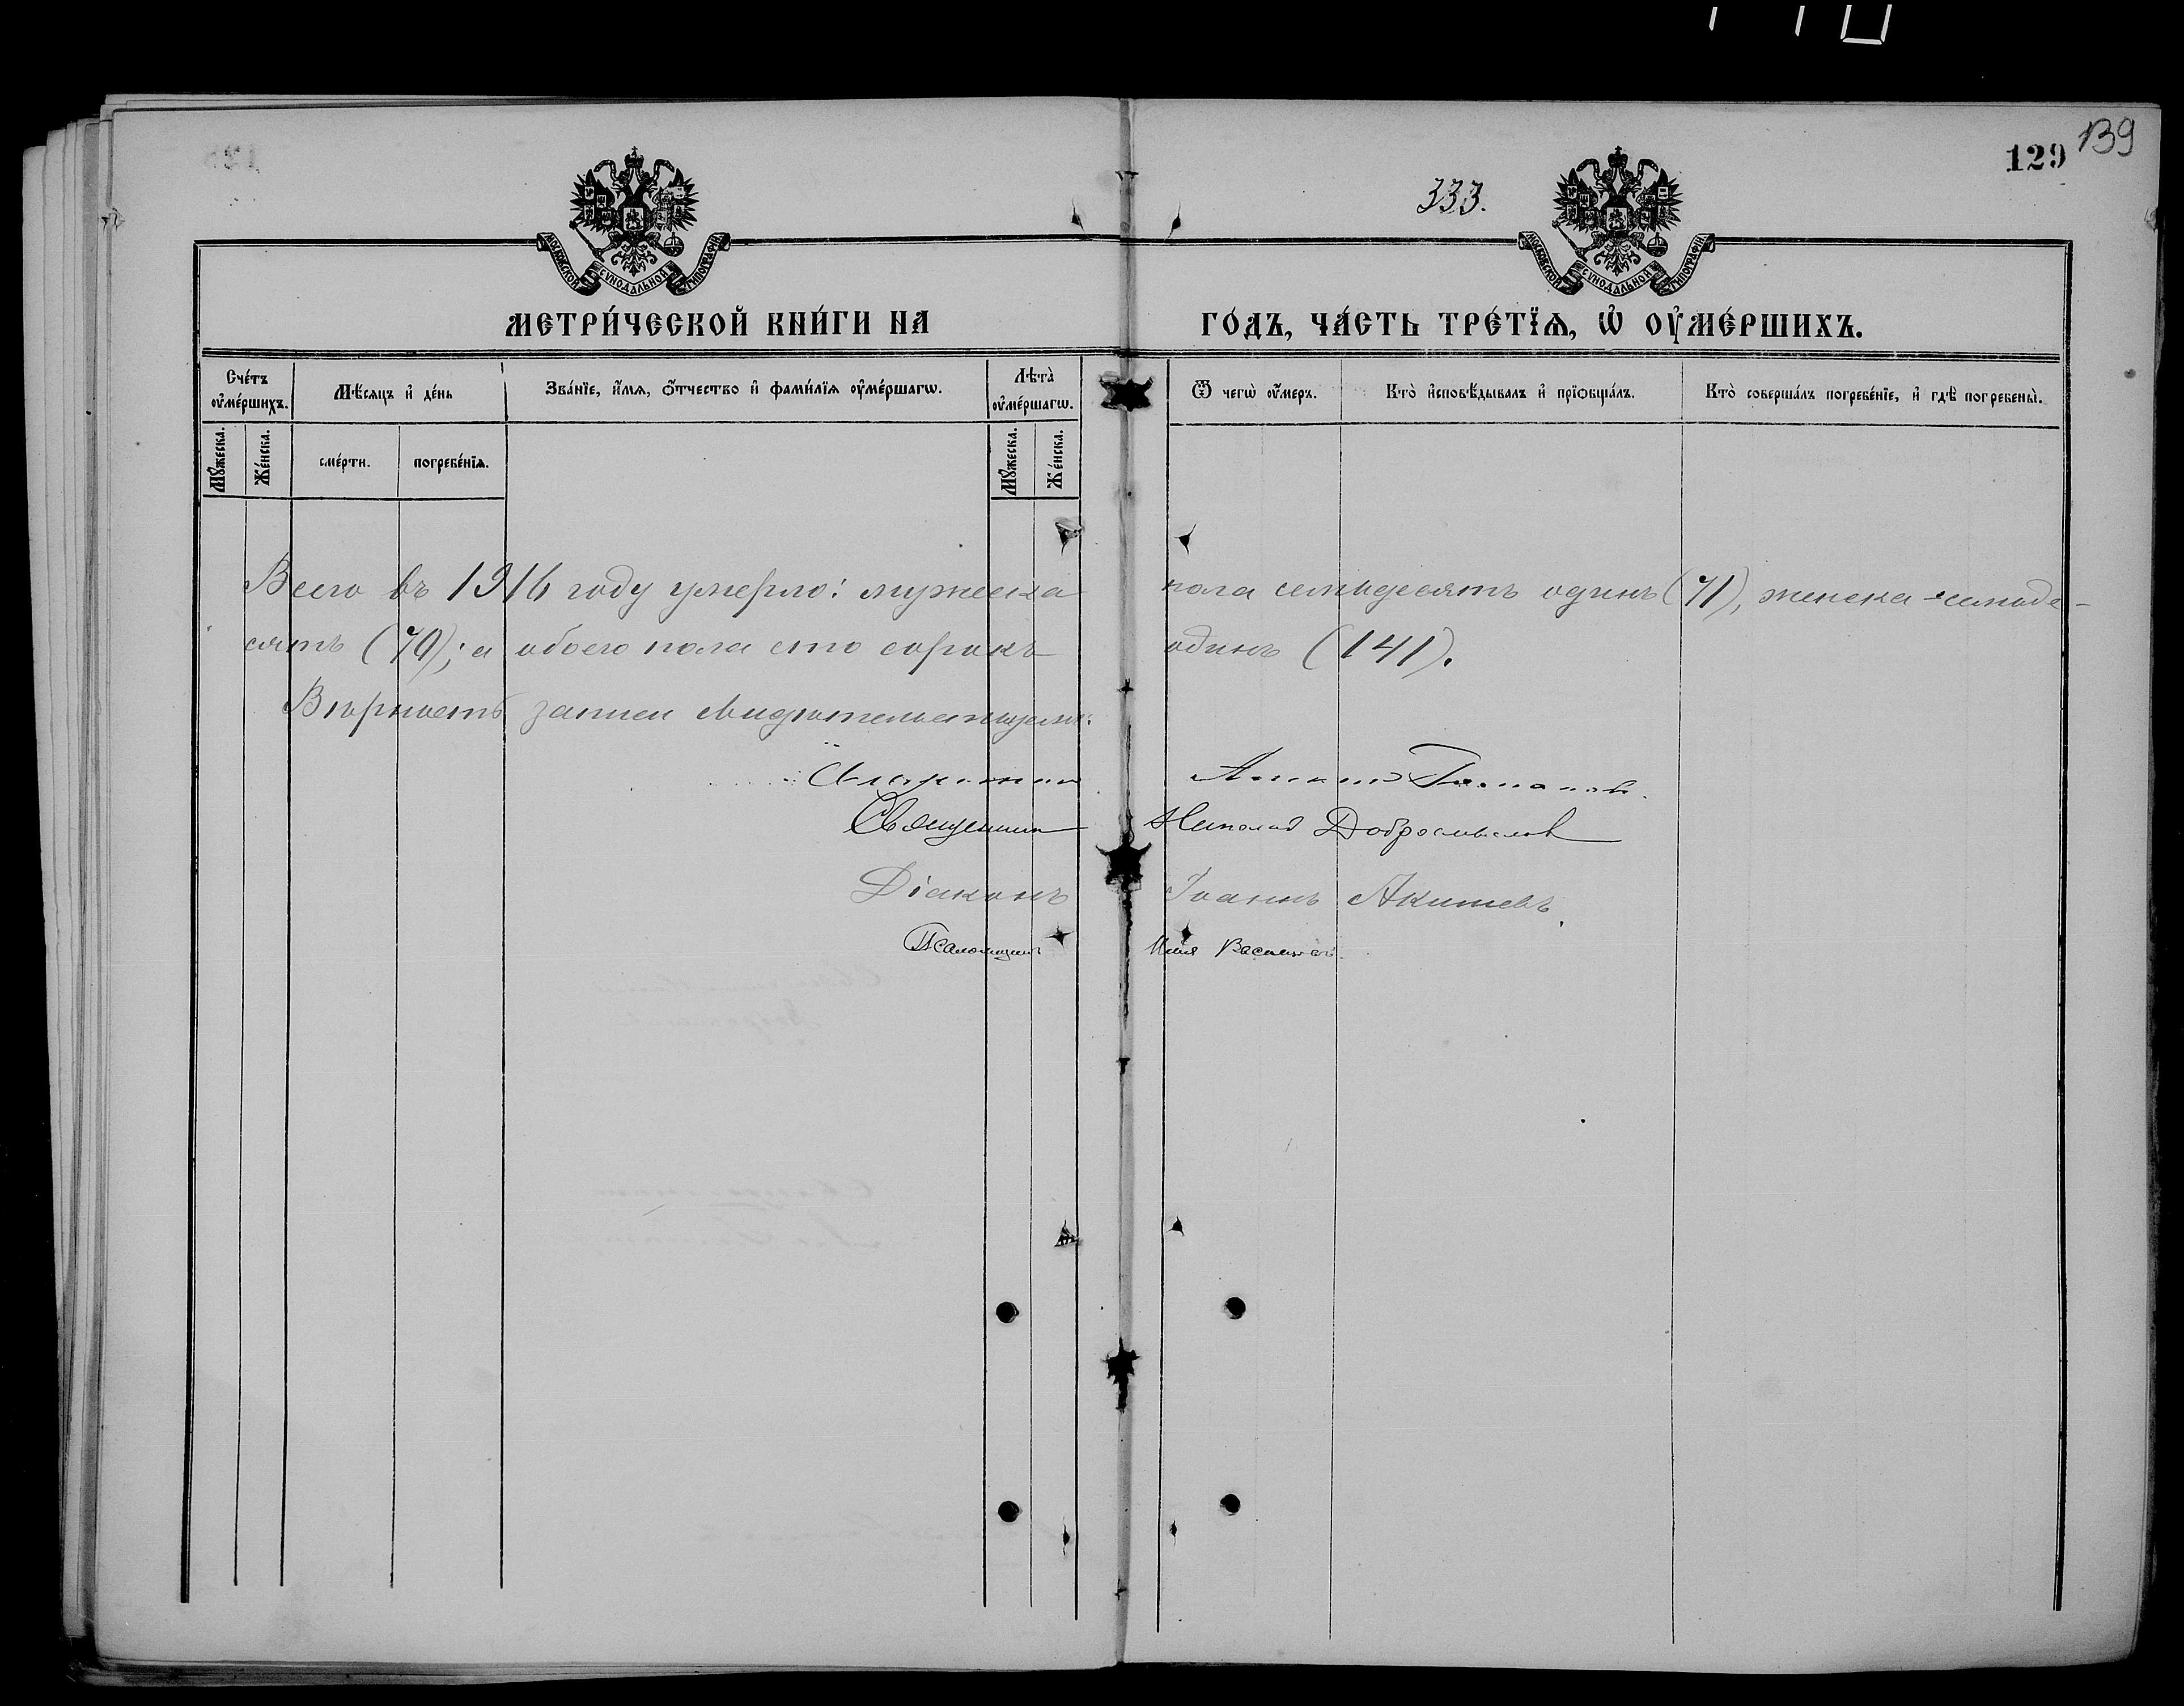 139
129
333.
МОСКОВСКОЙ СѴНОДАЛЬНОЙ ТИПОГРАФІИ
МОСКОВСКОЙ СѴНОДАЛЬНОЙ ТИПОГРАФІИ
МЕТРИ́ЧЕСКОЙ КНИ́ГИ НА ГО́ДЪ, ЧА́СТЬ ТРЕ́ТЇѦ, Ѡ҆ ОУ҆МЕ́РШИХЪ.
Сче́тъ оу҆ме́ршихъ.
Мѣ́сяцъ и҆ де́нь
Зва́нїе, и҆́мѧ, ѻ҆́тчество и҆ фами́лїѧ оу҆ме́ршагѡ.
Лѣта̀ оу҆ме́ршагѡ.
Ѿ чегѡ̀ оу҆́меръ.
Кто̀ и҆сповѣ́дывалъ и҆ прїѻбща́лъ.
Кто̀ соверша́лъ погребе́нїе, и҆ гдѣ̀ погребены̀.
Мꙋ́жеска.
Же́нска.
сме́рти.
погребе́нїѧ.
Мꙋ́жеска.
Же́нска.
Всего въ 1916 году умерло: мужеска пола семьдесятъ одинъ (71), женска - семьде-
сятъ (70); а обоего пола сто сорокъ одинъ (141).
Вѣрность записи свидѣтельствуемъ:
Священникъ
Священникъ Николай Добросмысловъ
Діаконъ Іоаннъ Акишевъ.
Псаломщикъ Илія Васильевъ.